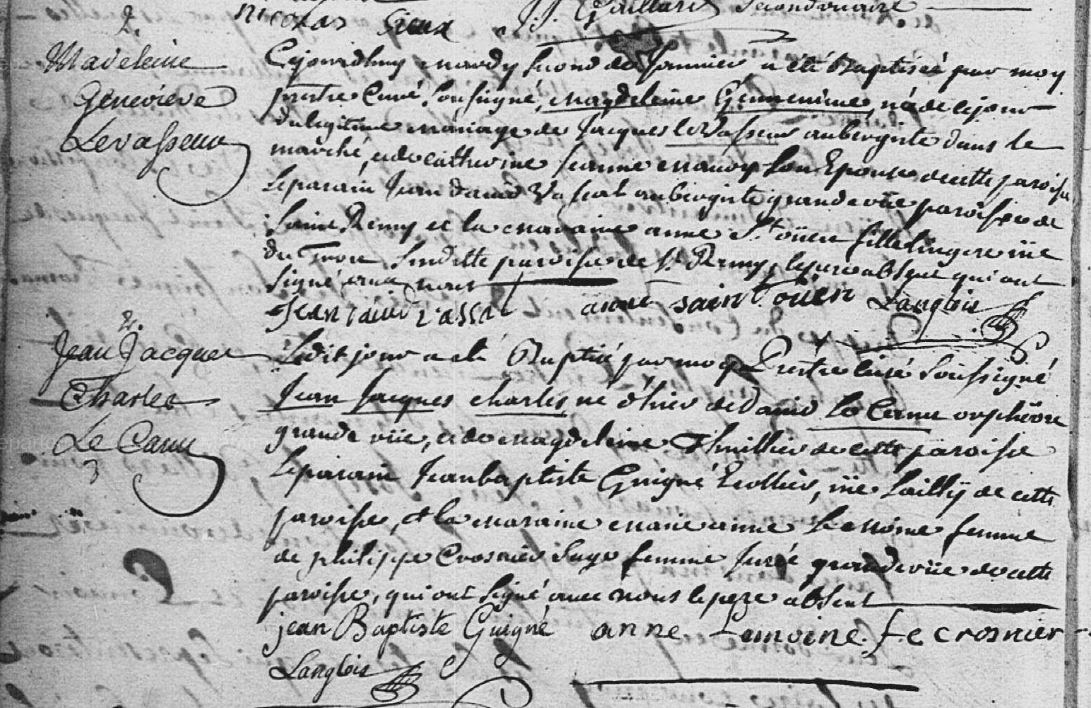 Nicolas Sieux J. J. Gaillard
2.
Madeleine
Geneviève
Levasseur
Cejourdhuy mardy second de Janvier a été Baptisée par moy
prestre Curé soussigné, Magdeleine née de ce jour
du legitime mariage de Jacques le Vasseur aubergiste dans le
marché, et de catherine jeanne son Epouse de cette paroisse
le parain Jean David Vassal aubergiste grande rüe paroisse de
Saint Remy et la maraine anne St oüen fille lingere rüe
du susditte paroisse de St Remy, le pere absent qui ont
signé avec nous
Jean david Vassal anne saint oüen Langlois
2.
Jean Jacques
Charles
Le Canu
3
Ledit jour a eté Baptisé par moy Prestre Curé soussigné
Jean Jacques charles né d'hier de David le Canu orphèvre
grande rüe, et de Magdeleine Thuillier de cette paroisse
le parain Jean baptiste Guigné Ecollier, rüe de cette
paroisse, et la maraine marie anne le moine femme
de philippe Crosnier sage femme Jurée grande rüe de cette
paroisse, qui ont signé avec nous le pere absent
jean Baptiste Guigné anne Lemoine fe crosnier
Langlois